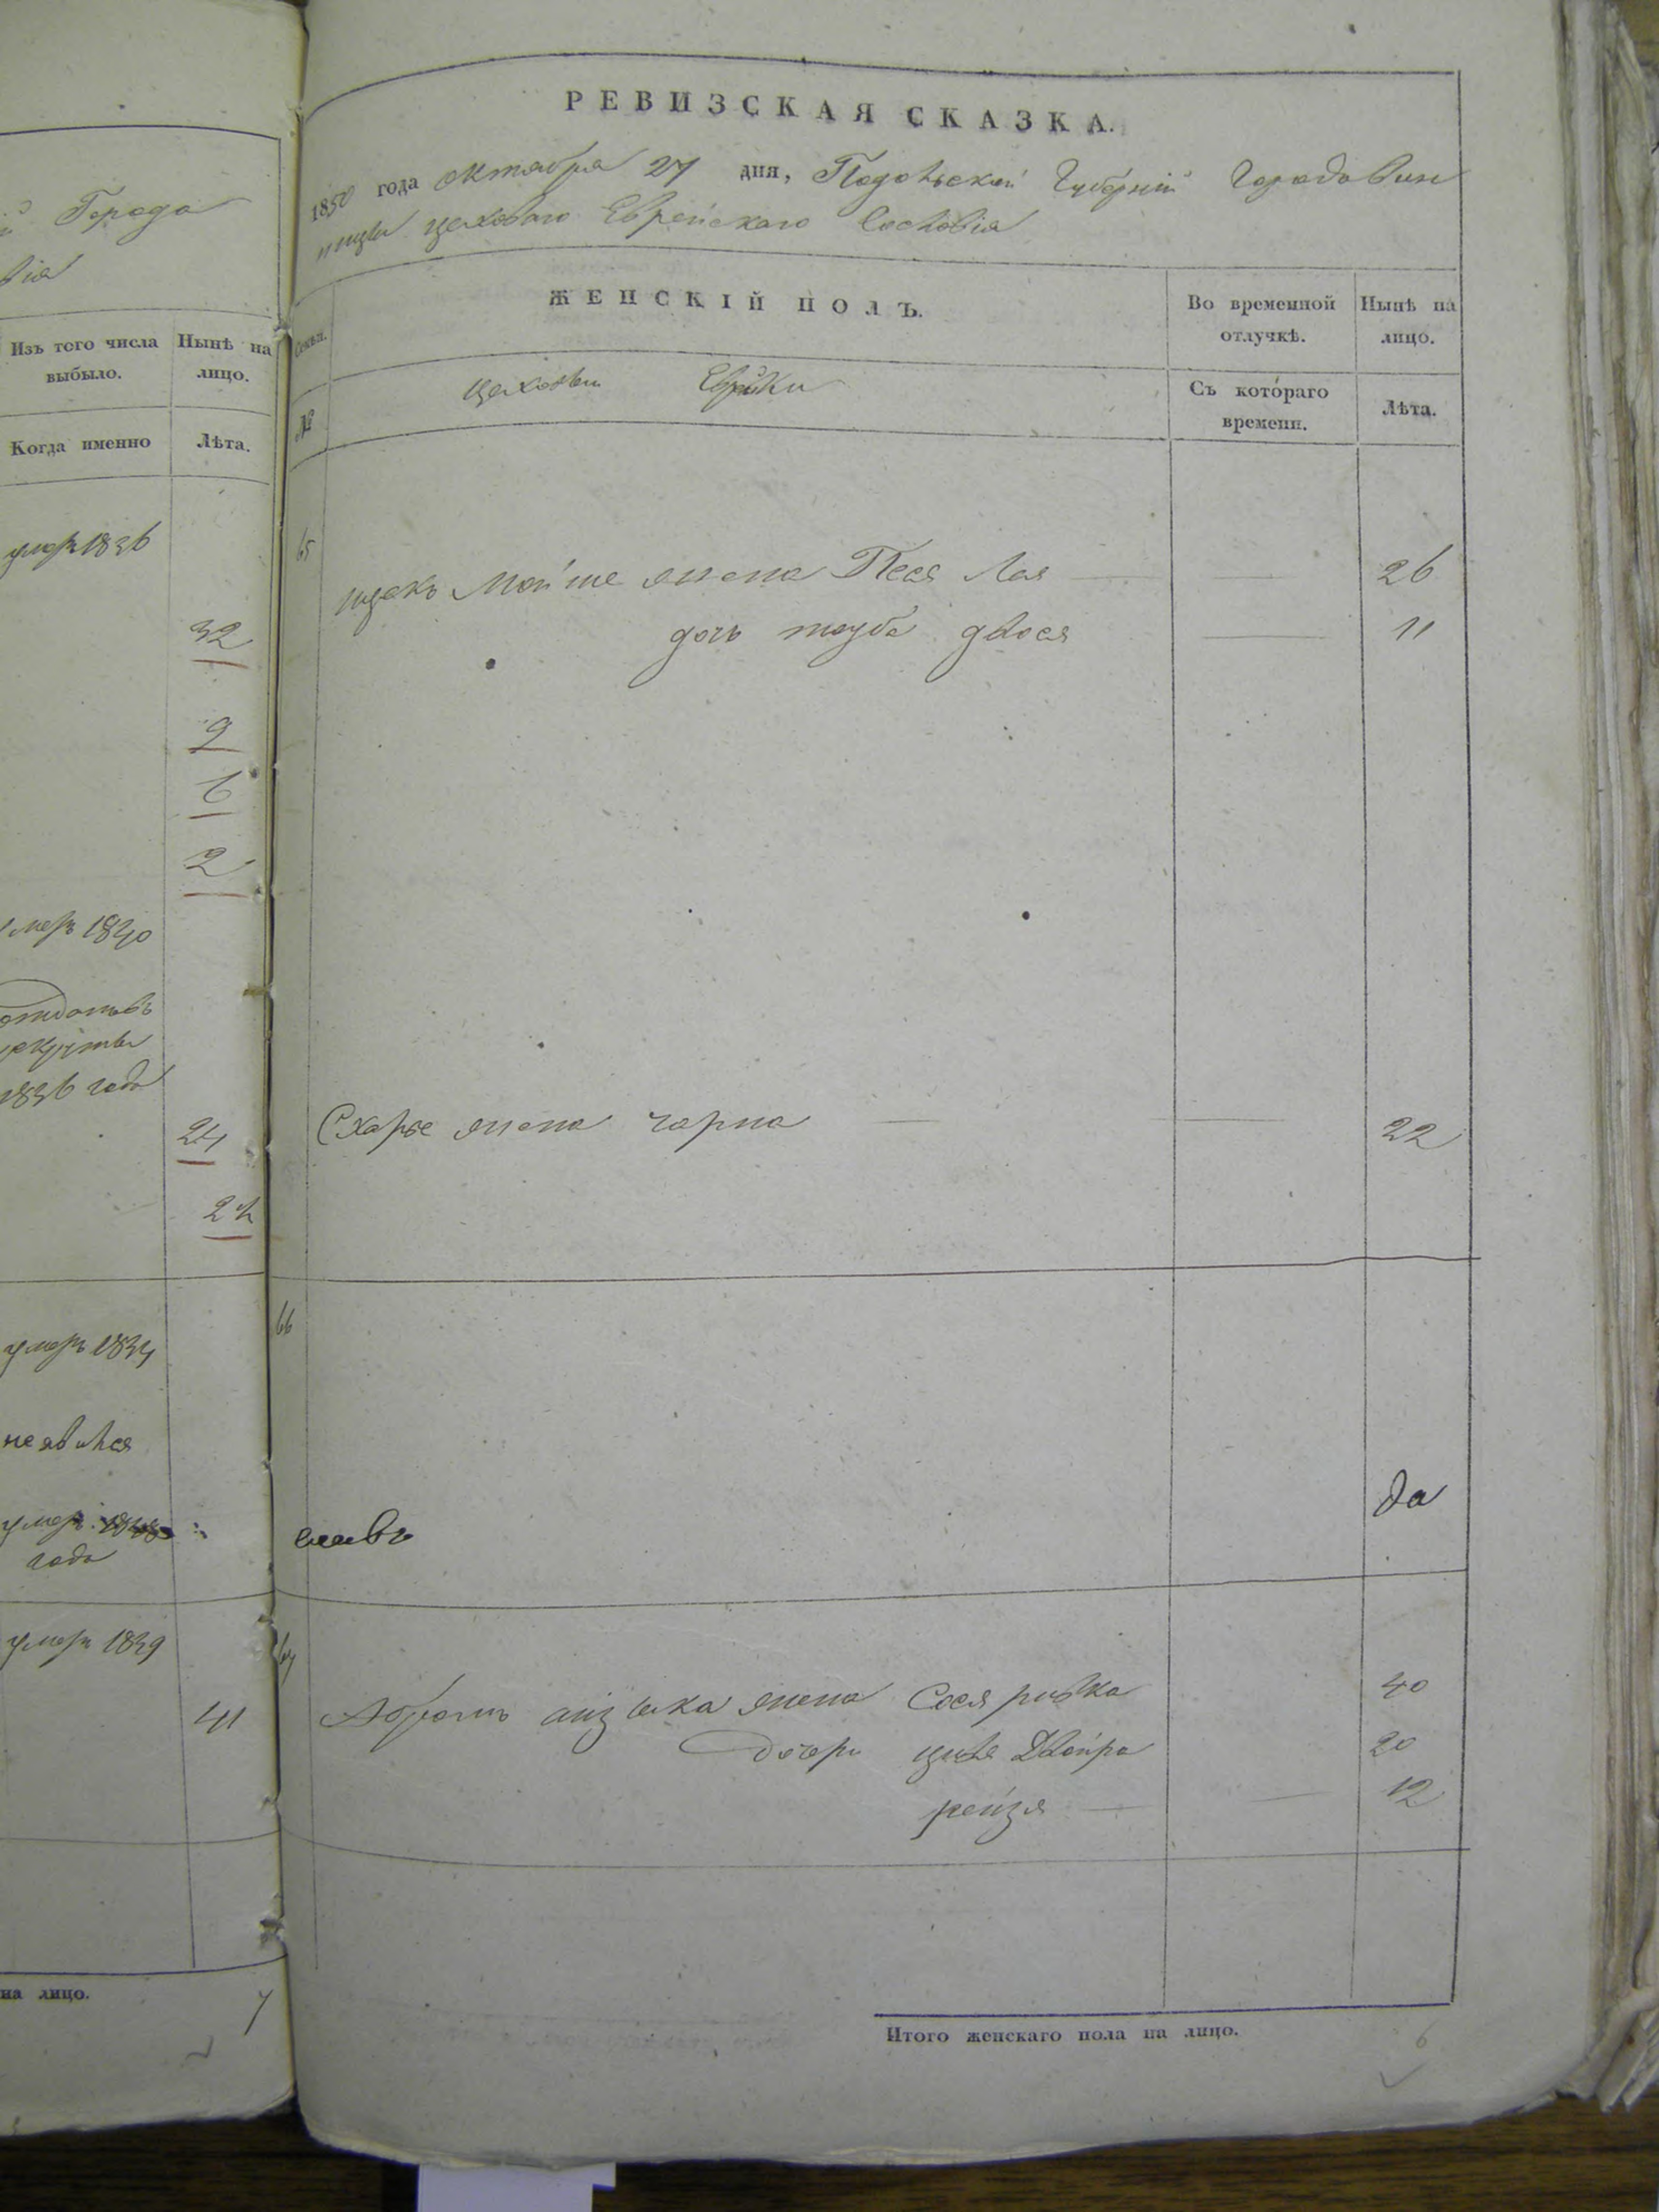 Города
вія
Изъ того числа выбыло.
Нынѣ на лицо.
Когда именно
Лѣта.
умеръ 1836
32
9
6
2
умеръ 1840
рекруты
1836 года
24
22
умеръ 1834
не явился
умеръ
года
умеръ 1839
41
на лицо.
7
РЕВИЗСКАЯ СКАЗКА.
1850 года октября 27 дня, Подольской Губерніи Города Вин
ницы цеховаго Еврейскаго Сословія
Семьи.
ЖЕНСКІЙ ПОЛЪ.
Во временной отлучкѣ.
Нынѣ на лицо.
№
цеховыи Еврейки
Съ котораго времени.
Лѣта.
65
ицекъ Мойше жена Песя Лая 26
дочь тауба двося 11
Схарье жена чарна 22
66
да
67
Абрамъ айзыка жена Сося ривка 40
дочери циля Двойра 20
рейзя 12
Итого женскаго пола на лицо.
6